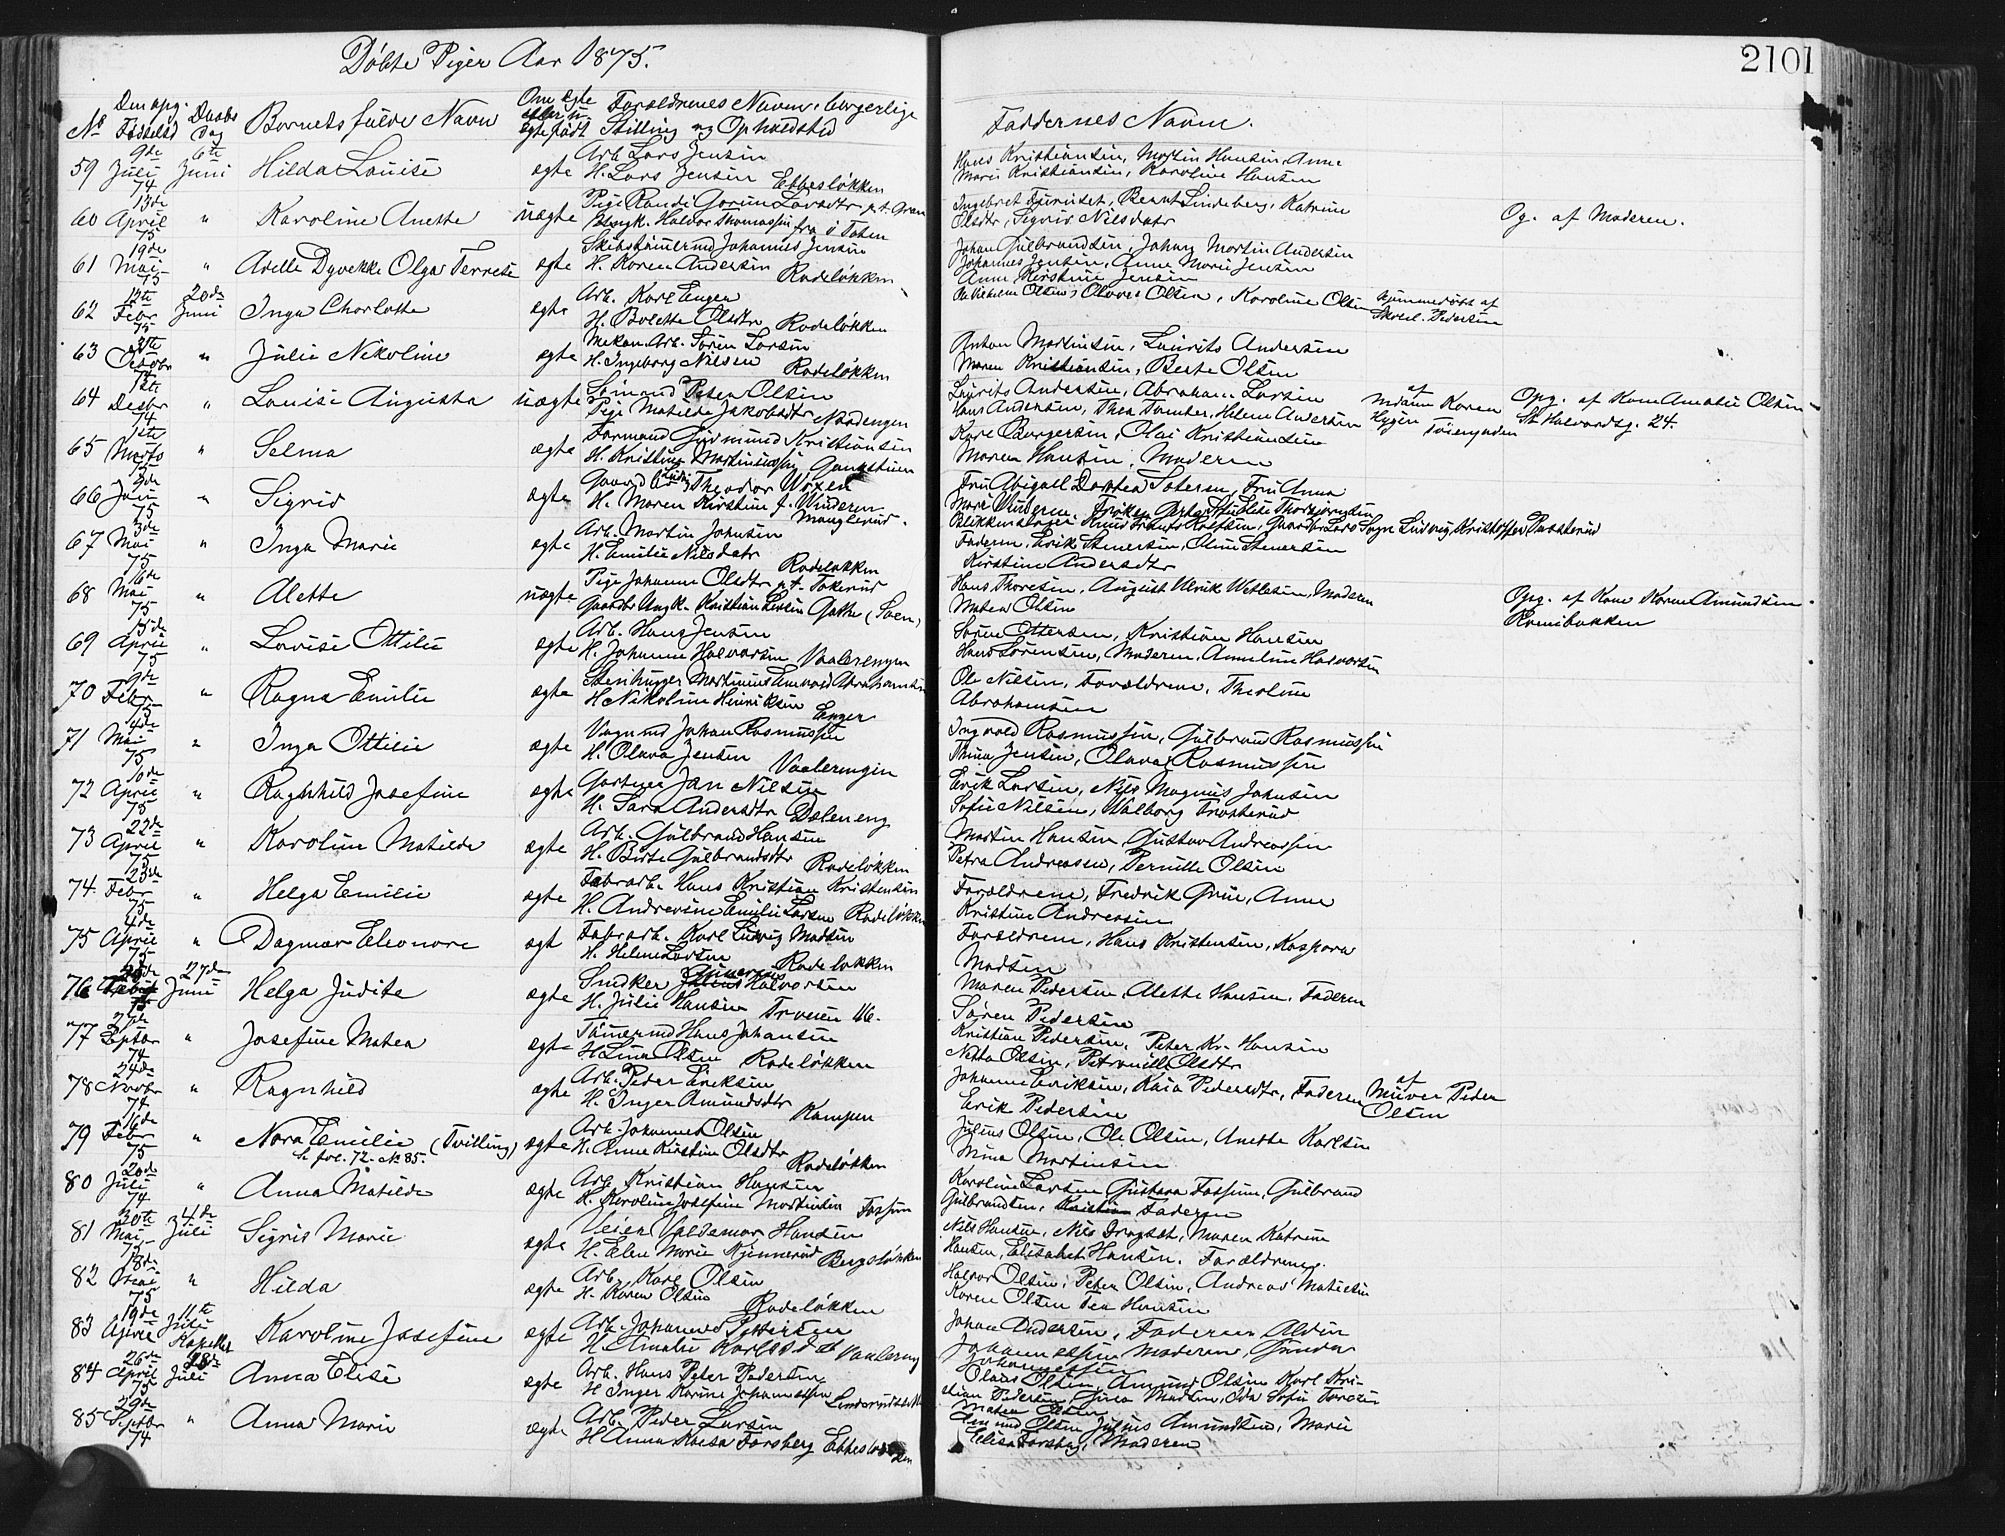 Døbte Piger Aar 1875.
2101
No Den opg. Fødselstid Daabs Dag Barnets fulde Navn Om ægte eller uægte født Forældrenes Navne, borgerlige Stilling og Opholdsted Faddernes Navne.
59 9de Juli 74 6te Juni Hilda Louise ægte Arb. Lars Jensen
H. Lars Jensen Ebbesløkken
Hans Kristiansen, Martin Hansen, Anne
Marie Kristiansen, Karoline Hansen
60 13de April 75 " Karoline Anette uægte Pige Randi Larsdtr p.t. Grøn
Halvor Thomassen fra ø Toten
Ingebret Bernt Lindeberg, Katrine
Olsdtr, Sigrid Nilsdatr
Og. af Moderen.
61 19de Mai 75 " Adelle Dyvekke Olga Terrese ægte Skibstømermd Johannes Jensen
H. Karen Andersen Rodeløkken
Johan Gulbrandsen, Johan Martin Andersen
Johannes Jensen, Anne Marie Jensen
Anne Kirstine Jensen
62 12te Febr 75 20de Juni Inga Charlotte ægte Arb. Karl Enger
H. Bolette Olsdtr Rodeløkken
Ole Vilhelm Olsen, Olave Olsen, Karoline Olsen Hjemmedøbt af
Pedersen
63 2te Octobr 74 " Julie Nikoline ægte Mekan. Arb. Søren Larsen
H. Ingeborg Nilsen Rodeløkken
Anton Martinsen, Laurits Andersen
Maren Kristiansen, Berte Olsen
64 12te Decbr 74 " Louise Augusta uægte Sømand Peter Olsen
Pige Matilde Jakobsdtr Nordengen
Laurits Andersen, Abraham Larsen
Hans Andersen, Thea Helene Andersen
af Mdame Karen Hygen Tøiengaden
Opg. af Kone Amalie Olsen
St Halvardsg. 24.
65 12te Marts 75 " Selma ægte Formand Gudmund Kristiansen
H. Kristine Martinussen
Kare Borgersen, Olai Kristiansen
Maren Hansen, Moderen
66 2de Juni 75 " Sigrid ægte Gaardbr. Ludvig Theodor Woxen
H. Maren Kirstine f. Winderen
Manglerud.
Fru Abigael Dorthea Fru Anna
Marie Winderen, Frøken Elise Thorbjørnsen
67 3de Mai 75 " Inga Marie ægte Arb. Martin Johnsen
H. Emilie Nilsdatr Rodeløkken
Faderen, Erik Stenersen, Oline Stenersen
Kirstine Andersdtr
68 16de Mai 75 " Alette uægte Pige Johanne Olsdtr p.t. Tokerud
Gaardbr Ungk. Kristian Larsen
Hans Thoresen, August Ulrik Wetlesen, Moderen
Matea Olsen
Opg. af Kone Karen Amundsen
69 15de April 75 " Lovise Ottilie ægte Arb. Hans Jensen
H. Johanne Halvorsen Vaalerengen
Søren Ottersen, Kristian Hansen
Hans Sørensen, Moderen, Anneline Halvorsen
70 9de Febr 75 " Ragna Emilie ægte Stenhugger Martinius Edvard Abrahamsen
H. Nikoline Henriksen Enger
Ole Nilsen, Forældrene, Theoline
Abrahamsen
71 4de Mai 75 " Inga Ottilie ægte Vognmd Johan Rasmussen
H. Olava Jensen Vaalerengen
Ingvald Rasmussen, Gulbrand Rasmussen
Thina Jensen, Olava Rasmussen
72 10de April 75 " Ragnhild Josefine ægte Gartner Jan Nilsen
H. Sara Andersdtr Dæleneng
Erik Larsen, Nils Magnus Johnsen
Sofie Nilsen, Walborg Trosterud
73 22de April 75 " Karoline Matilde ægte Arb. Gulbrand Hansen
H. Birte Gulbrandsdtr Rodeløkken
Martin Hansen, Gustav Andreassen
Petra Andreassen, Pernille Olsen
74. 23de Febr 75 " Helga Emilie ægte Fabrarb. Hans Kristian Kristensen
H. Andrevine Emilie Larsen Rodeløkken
Forældrene, Fredrik Grue, Anne
Kristine Andreasen
75 4de April 75 " Dagmar Eleonore ægt Fabrarb. Karl Ludvig Madsen
H. Helene Larsen Rodeløkken
Forældrene, Hans Kristensen, Kaspara
Madsen
76 27de Juni Helga Judite ægte Snedker Halvorsen
H. Julie Hansen Trveien 16.
Maren Pedersen, Alette Hansen, Faderen
Søren Pedersen
77 27de Septbr 74 " Josefine Matea ægte Tømermd Hans Johansen
H. Lina Olsen Rodeløkken
Kristian Pedersen, Peter Kr. Hansen
Netta Olsen, Petronille Olsdtr
78 24de Novbr 74 " Ragnhild ægte Arb. Peder Eriksen
H. Inger Amundsdtr Kampen
Johanne Eriksen, Kaia Pedersdtr, Faderen
Erik Pedersen
af Murer Peder Olsen
79 16de Febr 75 " Nora Emilie (Tvilling)
fol. 72 - No 85. ægte Arb. Johannes Olsen
H. Anne Kirstine Olsdtr Rodeløkken
Julius Olsen, Ole Olsen, Anette Karlsen
Mina Martinsen
80 20de Juli 74 " Anna Matilde ægte Arb. Kristian Hansen
H. Karoline Josefine Martinsen Fossum
Karoline Larsen, Gustava Fossum, Gulbrand
Gulbrandsen, Faderen
81 30te Mai 75 4de Juli Sigrid Marie ægte Veier Valdemar Hansen
H. Elen Marie Kjennerud Bergsløkken
Nils Hansen, Nils Dragset, Maren Katrine
Hansen, Elisabet Hansen, Forældrene.
82 18de Mai 75 " Hilda ægte Arb. Karl Olsen
H. Karen Olsen Rodeløkken
Halvor Olsen, Peter Olsen, Andreas Matiesen
Karen Olsen, Tea Hansen
83 19de April 11te Juli Kapellet Karoline Josefine ægte Arb. Johannes Pettersen
H. Amalie Karlsd. Vaalereng
Johan Andersen, Faderen, Aldin
Johannessen, Moderen, Gunda
Johannessen
84 26de April 75 18de Juli Anna Elise ægte Arb. Hans Peter Pedersen
H. Inger Karine Johannessen
Olaus Olsen, Amund Olsen, Karl Kristian
Pedersen, Gina Madsen, Ida Sofie
Matea Olsen
85 29de Septbr 74 " Anna Marie ægte Arb. Peder Larsen
H. Anna Kaisa Forsberg Ebbesløkken
Emund Olsen, Julius Amundsen, Marie
Elisa Forsberg, Moderen